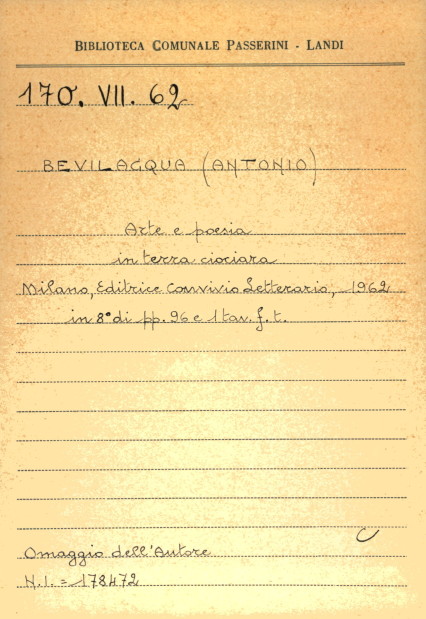 BIBLIOTECA COMUNALE PASSERINI - LANDI
170. VII. 62
BEVILACQUA (ANTONIO)
Arte e poesia
in terra ciociara
Milano, Editrice Convivio Letterario, 1962
in 8° di pp. 96 e 1 tav. f. t.
C
Omaggio dell'Autore
N.I. = 178472